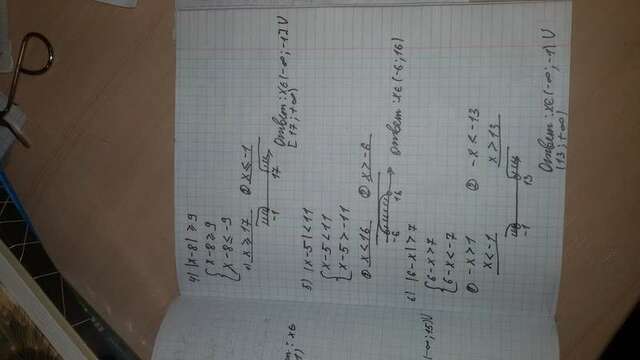 4) |x-8|≥9
{x-8≥9
{x-8≤-9
① x≥17 ② x≤-1
-1 17
Ответ: x∈(-∞;-17)∪
[17;+∞)
5) |x-5|<11
{x-5<11
{x-5>-11
① x<16 ② x>-6
-6 16
Ответ: x∈(-6;16)
6) |6-x|>7
{6-x>7
{6-x<-7
① -x>1 ② -x<-13
x<-1 x>13
-1 13
Ответ: x∈(-∞;-1)∪
(13;+∞)
(-∞;15)∪